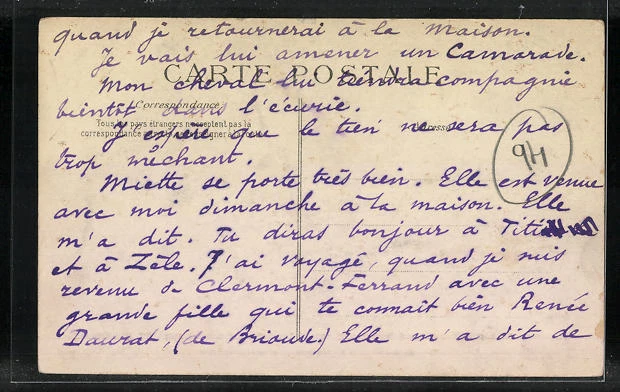 quand je retournerai à la maison.
Je vais lui amener un Camarade.
CARTE POSTALE
Mon cheval lui tiendra compagnie
Correspondance
bientôt dans l'écurie.
Tous les pays étrangers n'acceptent pas la
correspondance
J'espère que le tien ne sera pas
trop méchant.
94
Miette se porte très bien. Elle est venue
avec moi dimanche à la maison. Elle
m'a dit. Tu diras bonjour à Titi
et à Zèle. J'ai voyagé, quand je suis
revenu de Clermont-Ferrand avec une
grande fille qui te connait bien Renée
Daurat, (de Brioude.) Elle m'a dit de